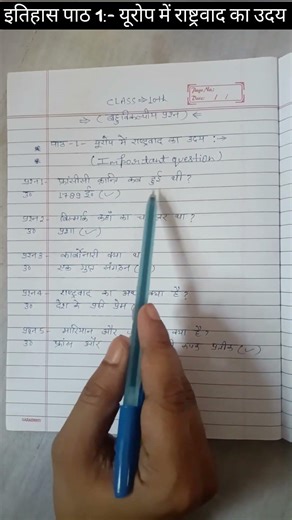 इतिहास पाठ 1:- यूरोप में राष्ट्रवाद का उदय
Page No:
Date: / /
CLASS → 10th
( बहुविकल्पीय प्रश्न )
पाठ -1- यूरोप में राष्ट्रवाद का उदय :→
(Important question)
प्रश्न1- फ्रांसीसी क्रान्ति कब हुई थी ?
उ० 1789 ई० (✓)
प्रश्न2- बिस्मार्क कहाँ का था ?
उ० प्रशा (✓)
प्रश्न3- कार्बोनारी क्या
उ० एक गुप्त संगठन
प्रश्न4- राष्ट्रवाद का क्या है ?
उ० देश के प्रति प्रेम
प्रश्न5- मारियान और क्या है ?
उ० फ्रांस और प्रतीक (✓)